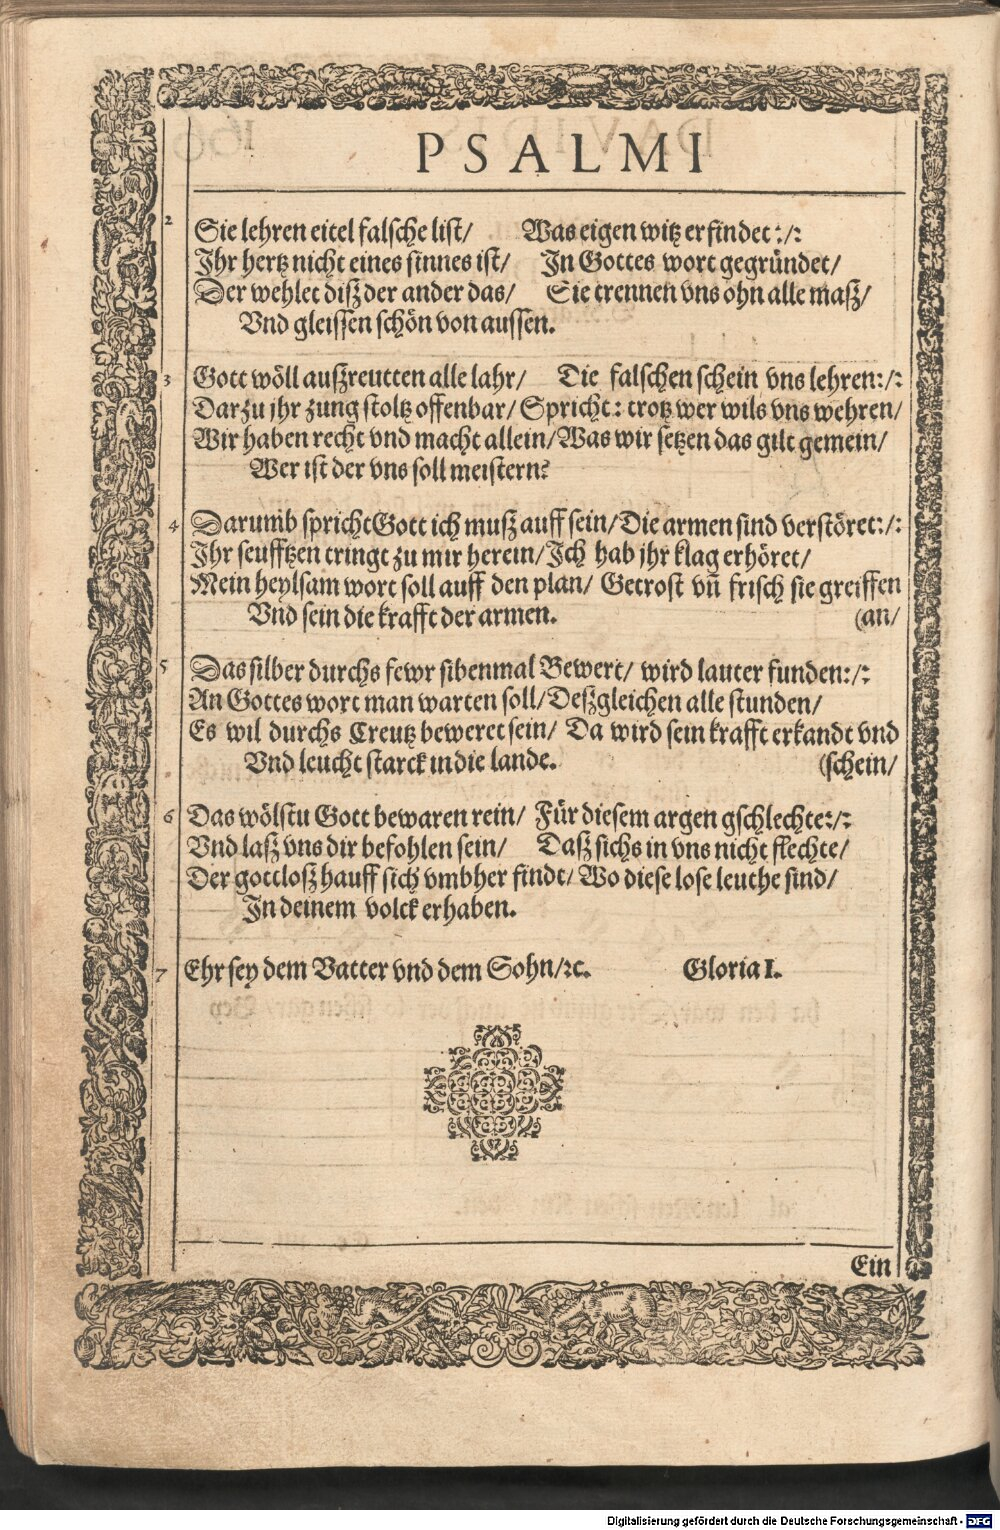 PSALMI
2 Sie lehren eitel falsche list/ Was eigen witz erfindet:/:
Jhr hertz nicht eines sinnes ist/ Jn Gottes wort gegründet/
Der wehlet disz der ander das/ Sie trennen vns ohn alle masz/
Vnd gleissen schön von aussen.
3 Gott wöll auszreutten alle lahr/ Die falschen schein vns lehren:/:
Darzu jhr zung stoltz offenbar/ Spricht: trotz wer wils vns wehren/
Wir haben recht vnd macht allein/ Was wir setzen das gilt gemein/
Wer ist der vns soll meistern?
4 Darumb spricht Gott ich musz auff sein/ Die armen sind verstöret:/:
Jhr seufftzen tringt zu mir herein/ Jch hab jhr klag erhöret/
Mein heylsam wort soll auff den plan/ Getrost vñ frisch sie greiffen
Vnd sein die krafft der armen. (an/
5 Das silber durchs fewr sibenmal Bewert/ wird lauter funden:/:
An Gottes wort man warten soll/ Deszgleichen alle stunden/
Es wil durchs Creutz beweret sein/ Da wird sein krafft erkandt vnd
Vnd leucht starck in die lande. (schein/
6 Das wölstu Gott bewaren rein/ Für diesem argen gschlechte:/:
Vnd lasz vns dir befohlen sein/ Dasz sichs in vns nicht flechte/
Der gottlosz hauff sich vmbher findt/ Wo diese lose leuthe sind/
Jn deinem volck erhaben.
7 Ehr sey dem Vatter vnd dem Sohn/ꝛc. Gloria I.
Ein
Digitalisierung gefördert durch die Deutsche Forschungsgemeinschaft - DFG